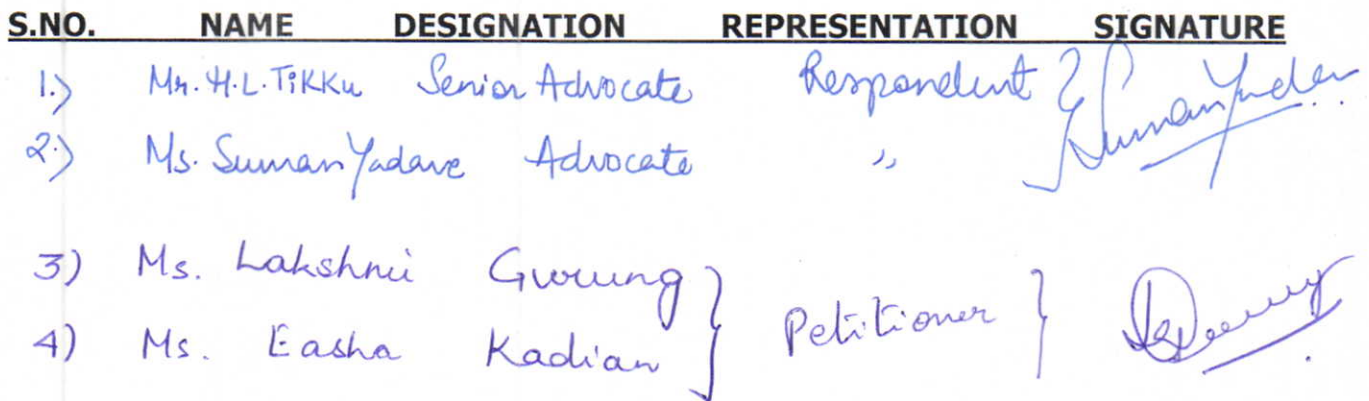 S.NO. NAME DESIGNATION REPRESENTATION SIGNATURE
1.) Mr. H.L. Tikku Senior Advocate Respondent } Suman Yadav
2.) Ms. Suman Yadave Advocate "
3) Ms. Lakshmi Gurung } Petitioner }
4) Ms. Easha Kadian